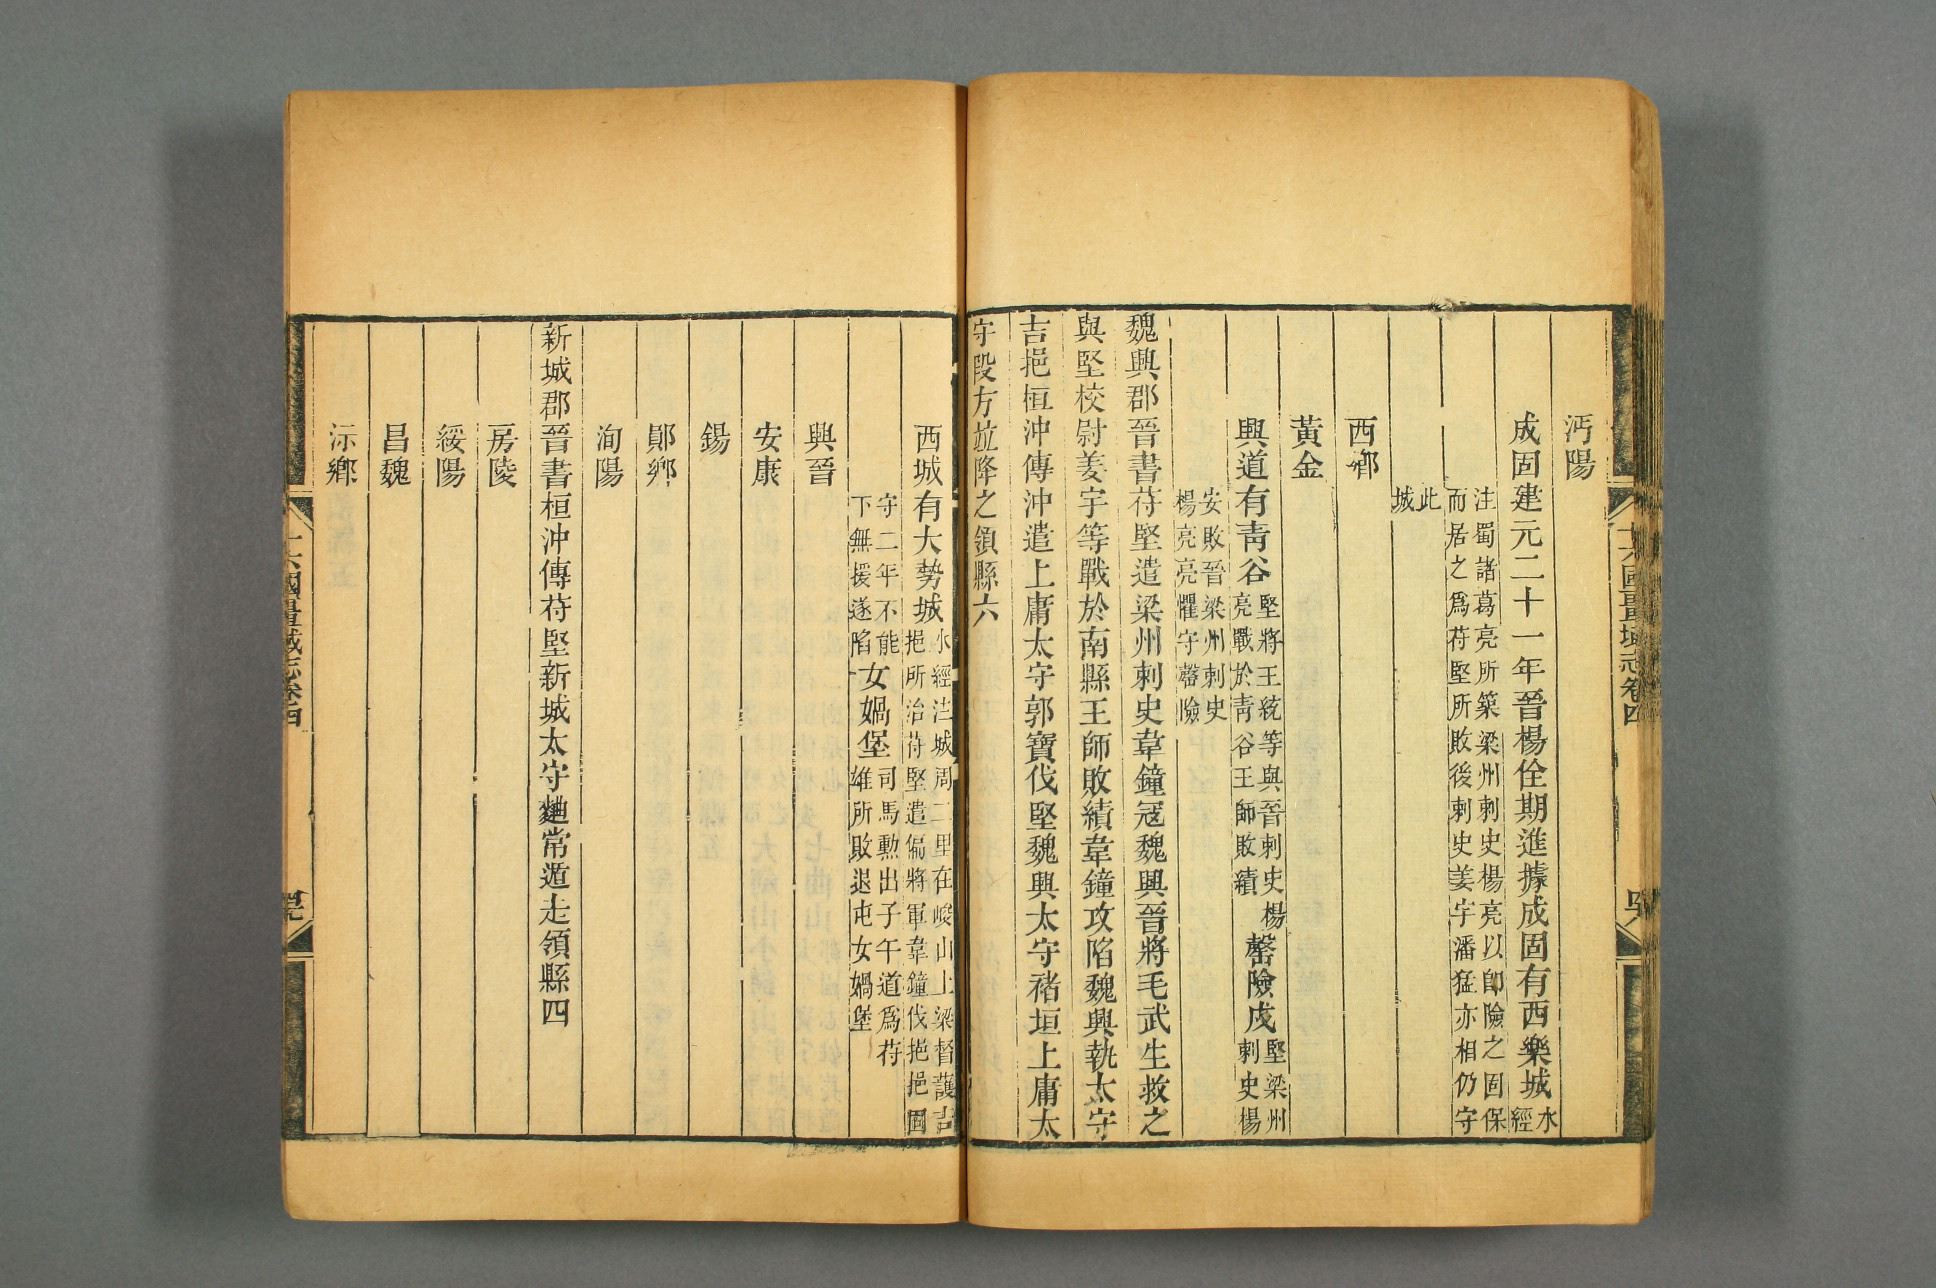 沔陽
成固建元二十一年晉楊佺期進據成固有西樂城水經
注蜀諸葛亮所築梁州刺史楊亮以卽險之固保
而居之爲苻堅所敗後刺史姜宇潘猛亦相仍守
此
城
西鄉
黃金
興道有青谷堅將王統等與晉刺史楊
亮戰於青谷王師敗績罄險戍堅梁州
刺史楊
安敗晉梁州刺史
楊亮亮懼守罄險
魏興郡晉書苻堅遣梁州刺史韋鐘冦魏興晉將毛武生救之
與堅校尉姜宇等戰於南縣王師敗績韋鐘攻陷魏興執太守
吉挹桓沖傳沖遣上庸太守郭寶伐堅魏興太守褚垣上庸太
守段方竝降之領縣六
西城有大勢城水經注城周二里在峻山上梁督護吉
挹所治苻堅遣偏將軍韋鐘伐挹挹固
守二年不能
下無援遂陷女媧堡司馬勲出子午道爲苻
雄所敗退屯女媧堡
興晉
安康
鍚
鄖鄉
洵陽
新城郡晉書桓沖傳苻堅新城太守麹常遁走領縣四
房陵
綏陽
昌魏
沶鄉
十六國疆域志卷四
十六國疆域志卷四